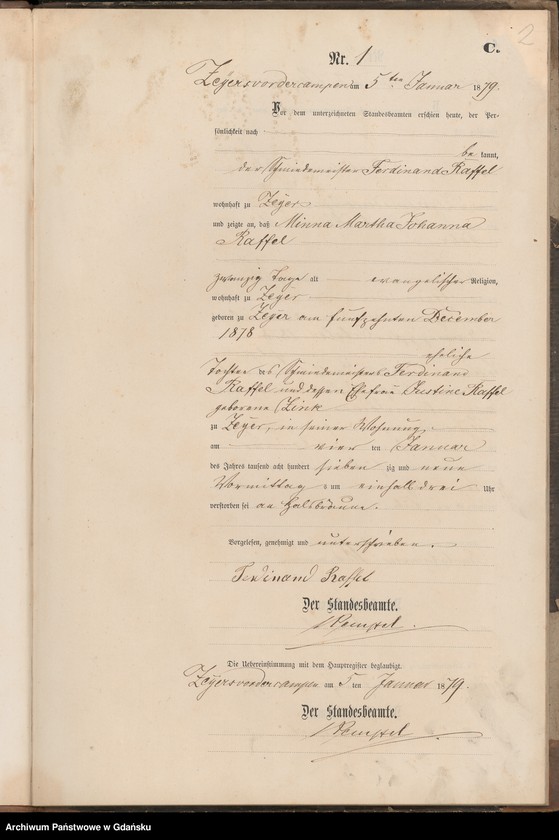 2
C.
Nr. 1
Zeyersvordercampen am 5ten Januar 1879.
Vor dem unterzeichneten Standesbeamten erschien heute, der Per-
sönlichkeit nach
be kannt,
der Schmiedemeister Ferdinand Raffel
wohnhaft zu Zeyer
und zeigte an, daß Minna Martha Johanna
Raffel
zwanzig Tage alt evangelischer Religion,
wohnhaft zu Zeyer
geboren zu Zeyer am fünfzehnten December
1878
eheliche
Tochter des Schmiedemeisters Ferdinand
Raffel und dessen Ehefrau Justine Raffel
geborene Link
zu Zeyer, in seiner Wohnung
am vier ten Januar
des Jahres tausend acht hundert sieben zig und neun
Vormittag s um einhalb drei Uhr
verstorben sei an Halsbräune.
Vorgelesen, genehmigt und unterschrieben.
Ferdinand Raffel
Der Standesbeamte.
Die Uebereinstimmung mit dem Hauptregister beglaubigt.
Zeyersvordercampen am 5 ten Januar 1879.
Der Standesbeamte.
Archiwum Państwowe w Gdańsku